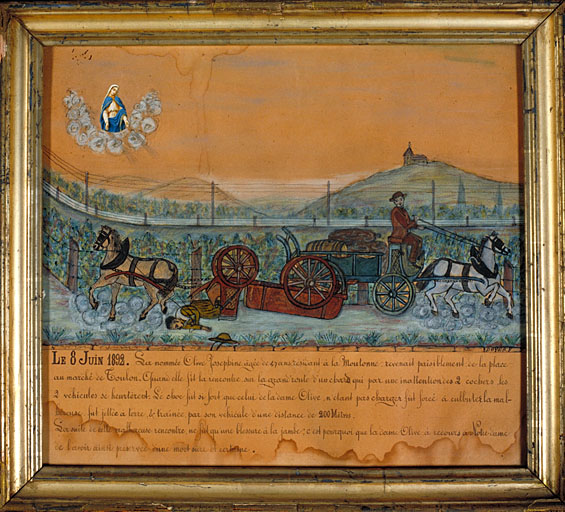 LE 8 JUIN 1892. La nommée Olive Joséphine agée de 67 ans restant à la Moutonne; revenait paisiblement de la place
au marché de Toulon. Quand elle fit la rencontre sur la grande route d'un chard qui par une inattention des 2 cochers les
2 véhicules se heurtèrent: Le choc fut si fort que celui de la dame Olive, n'étant pas chargé fut forcé à culbuter la mal-
heureuse fut jettée à terre, & trainée par son véhicule d'une distance de 200 Mètres.
La suite de cette malheureuse rencontre ne fut qu'une blessure à la jambe; c'est pourquoi que la dame Olive à recours à Notre dame
de l'avoir ainsi préservée d'une mort sure et certaine.